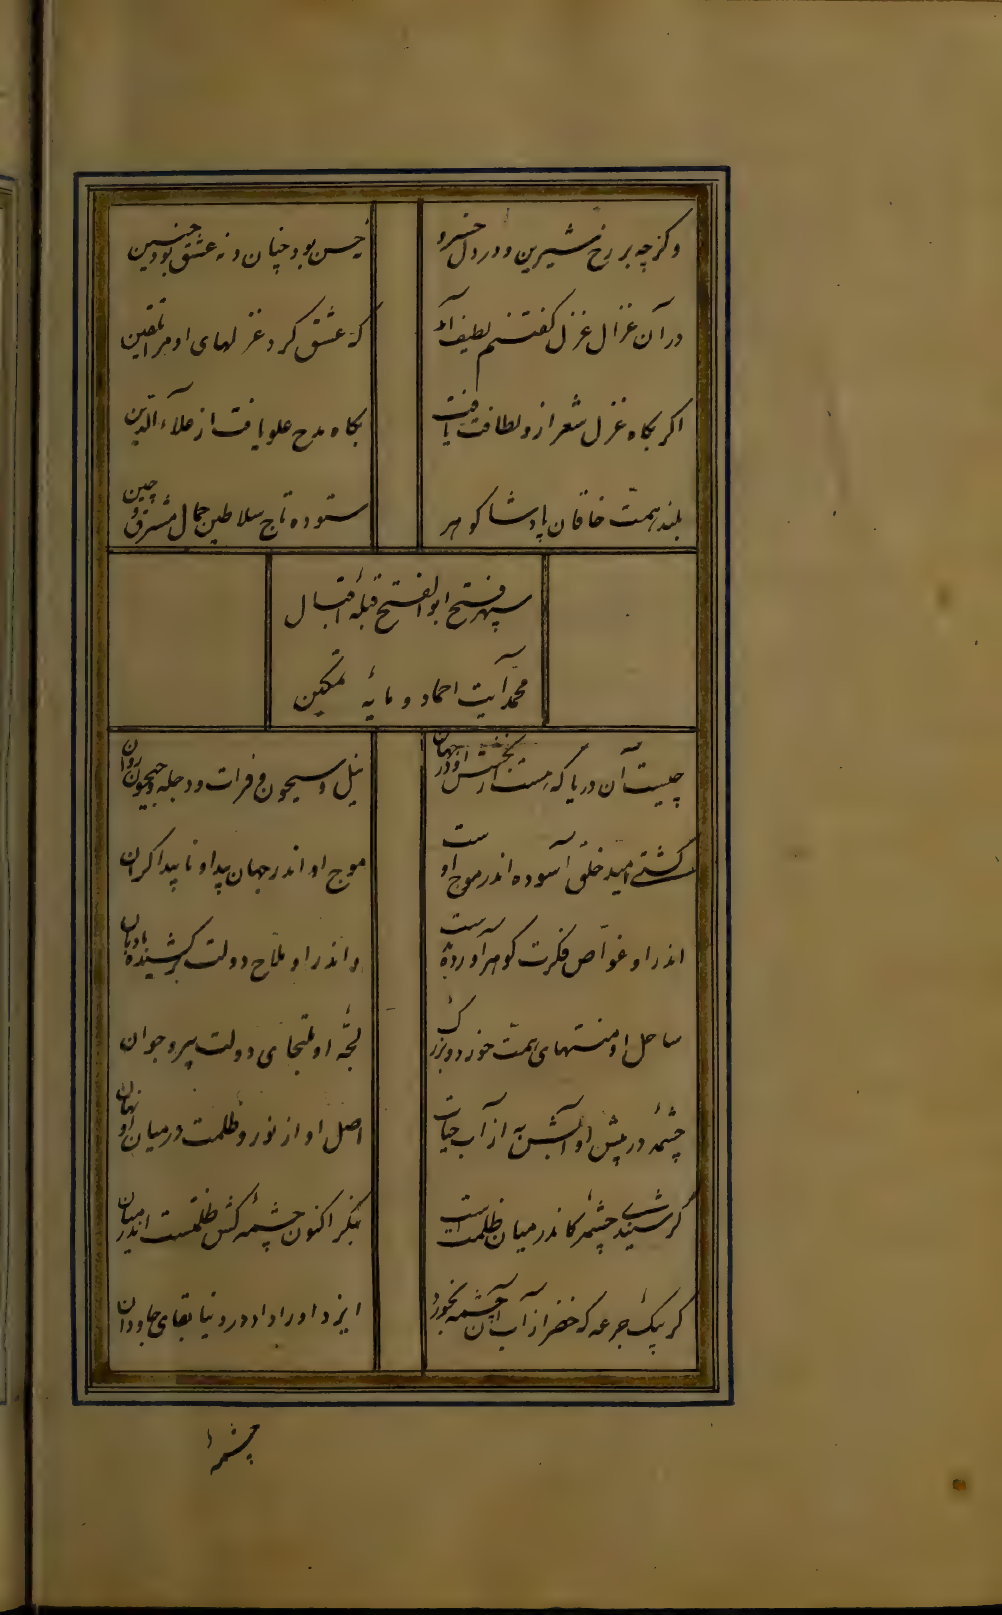 وکرچه بر رخ شیرین و در دل خسرو
نه حسن بود چنان و نه عشق بود چنین
در آن غزال غزل کفتنم لطیف آمد
که عشق کرد غزلهای او مرا تلقین
اکر بکاه غزل شعر از و لطافت یافت
بکاه مدح علو یافت از علاء الدین
بلند همت خاقان پادشا کوهر
ستوده تاج سلاطین جمال مشرق و چین
سپهر فتح ابو الفتح قبلهٔ اقبال
محمد آیت احماد و مایهٔ تمکین
چیست آن دریا که هست از بخشش او در جهان
نیل و سیحون و فرات و دجله و جیحون روان
کشتی امید خلق آسوده اندر موج اوست
موج او اندر جهان پیدا و ناپیدا کران
اندر او غواص فکرت کوهر آورده بدست
و اندر او ملاح دولت برکشیده بادبان
ساحل او منتهای همت خورد و بزرک
لجّه او ملتجای دولت پیر و جوان
چشمهٔ در پیش او آبش به از آب حیات
اصل او از نور و ظلمت در میان او نهان
کر شنیدی چشمهٔ کاندر میان ظلمت است
بنکر اکنون چشمهٔ کش ظلمتست اندر میان
کر بیک جرعه که خضر از آب آن چشمه بخورد
ایزد اورا داد در دنیا بقای جاودان
چشمهٔ